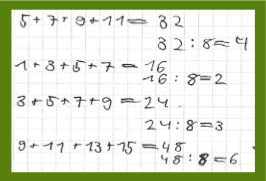 5+7+9+11=32
32:8=4
1+3+5+7=16
16:8=2
3+5+7+9=24
24:8=3
9+11+13+15=48
48:8=6